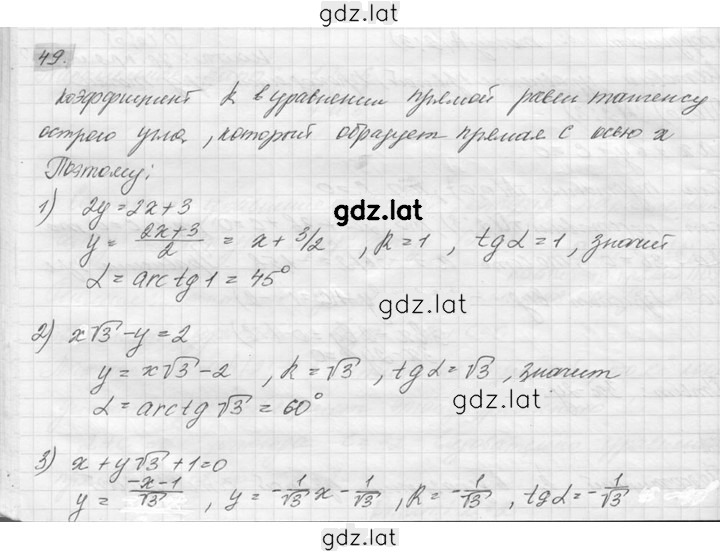 gdz.lat
49.
Коэффициент k в уравнении прямой равен тангенсу
острого угла, который образует прямая с осью x
Поэтому:
1) 2y = 2x + 3
gdz.lat
y = (2x+3)/2 = x + 3/2 , k = 1 , tg α = 1 , значит
α = arctg 1 = 45°
gdz.lat
2) x√3 - y = 2
y = x√3 - 2 , k = √3 , tg α = √3 , значит
α = arctg √3 = 60°
gdz.lat
3) x + y√3 + 1 = 0
y = (-x-1)/√3 , y = -1/√3 x - 1/√3 , k = -1/√3 , tg α = -1/√3
gdz.lat